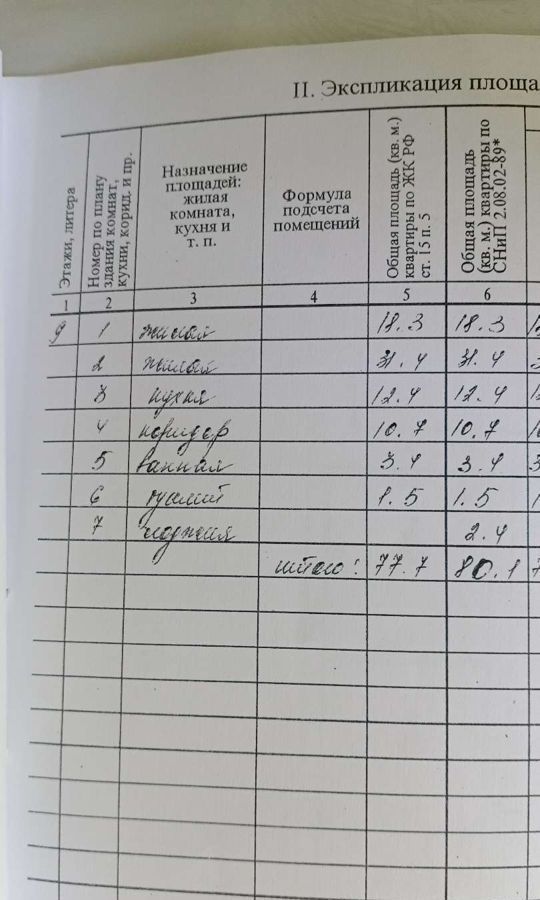 II. Экспликация площа
Этажи, литера
Номер по плану здания комнат, кухни, корид. и пр.
Назначение площадей: жилая комната, кухня и т. п.
Формула подсчета помещений
Общая площадь (кв. м.) квартиры по ЖК РФ ст. 15 п. 5
Общая площадь (кв. м.) квартиры по СНиП 2.08.02-89*
1 2 3 4 5 6
9 1 жилая 18.3 18.3
2 жилая 31.4 31.4
3 кухня 12.4 12.4
4 коридор 10.7 10.7
5 ванная 3.4 3.4
6 туалет 1.5 1.5
7 лоджия 2.4
итого: 77.7 80.1